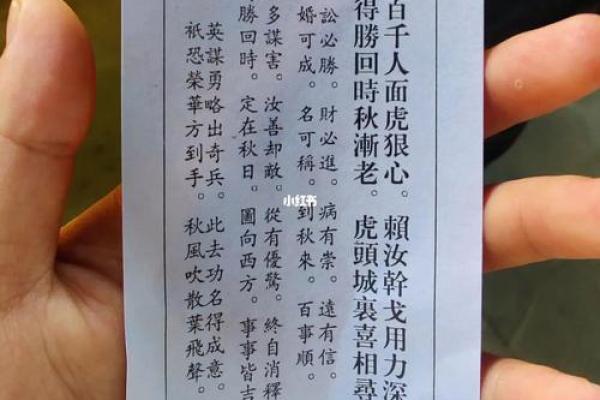 百千人面虎狠心。賴汝幹戈用力深
得勝回時秋漸老。虎頭城裏喜相尋
訟必勝。財必進。病有祟。遠有信。
婚可成。名可稱。到秋來。百事順。
多謀害。汝善却敵。從有優驚。終自消釋
勝回時。定在秋日。圖向西方。事事皆吉
英謀勇略出奇兵。此去功名得成意。
祇恐榮華方到手。秋風吹散葉飛聲。
小红书